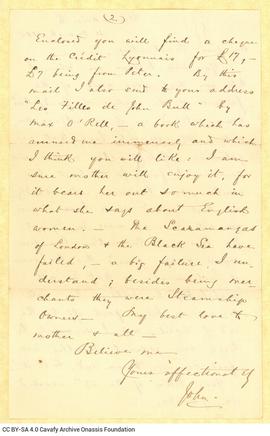 (2)
Enclosed you will find a cheque
on the Crédit Lyonnais for £17,-
£7 being from Peter. By this
mail I also send to your address
"Les Filles de John Bull" by
Max O'Rell, - a book which has
amused me immensely and which
I think you will like: I am
sure mother will enjoy it, for
it bears her out so much in
what she says about English
women. - The Scaramangas
of London & the Black Sea have
failed, - a big failure I un-
derstand; besides being mer-
chants they were Steamship
Owners - My best love to
mother & all -
Believe me
Yours affectionately
John.
CC BY-SA 4.0 Cavafy Archive Onassis Foundation